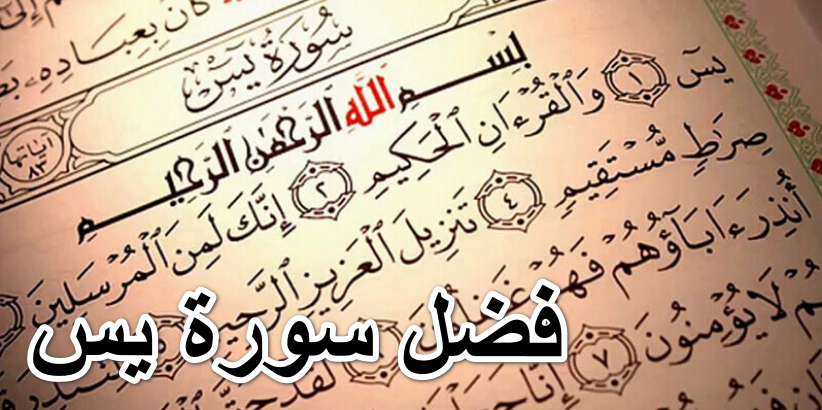 كَانَ بِعِبَادِهِ
سُورَةُ يسٓ
اياتها
٨٣
بِسْمِ اللَّهِ الرَّحْمَٰنِ الرَّحِيمِ
يسٓ ١ وَالْقُرْءَانِ الْحَكِيمِ ٢ إِنَّكَ لَمِنَ الْمُرْسَلِينَ
صِرَٰطٍ مُّسْتَقِيمٍ ٤ تَنزِيلَ الْعَزِيزِ الرَّحِيمِ
أُنذِرَ ءَابَآؤُهُمْ فَهُمْ
لَا يُؤْمِنُونَ ٧ إِنَّا
فضل سورة يس